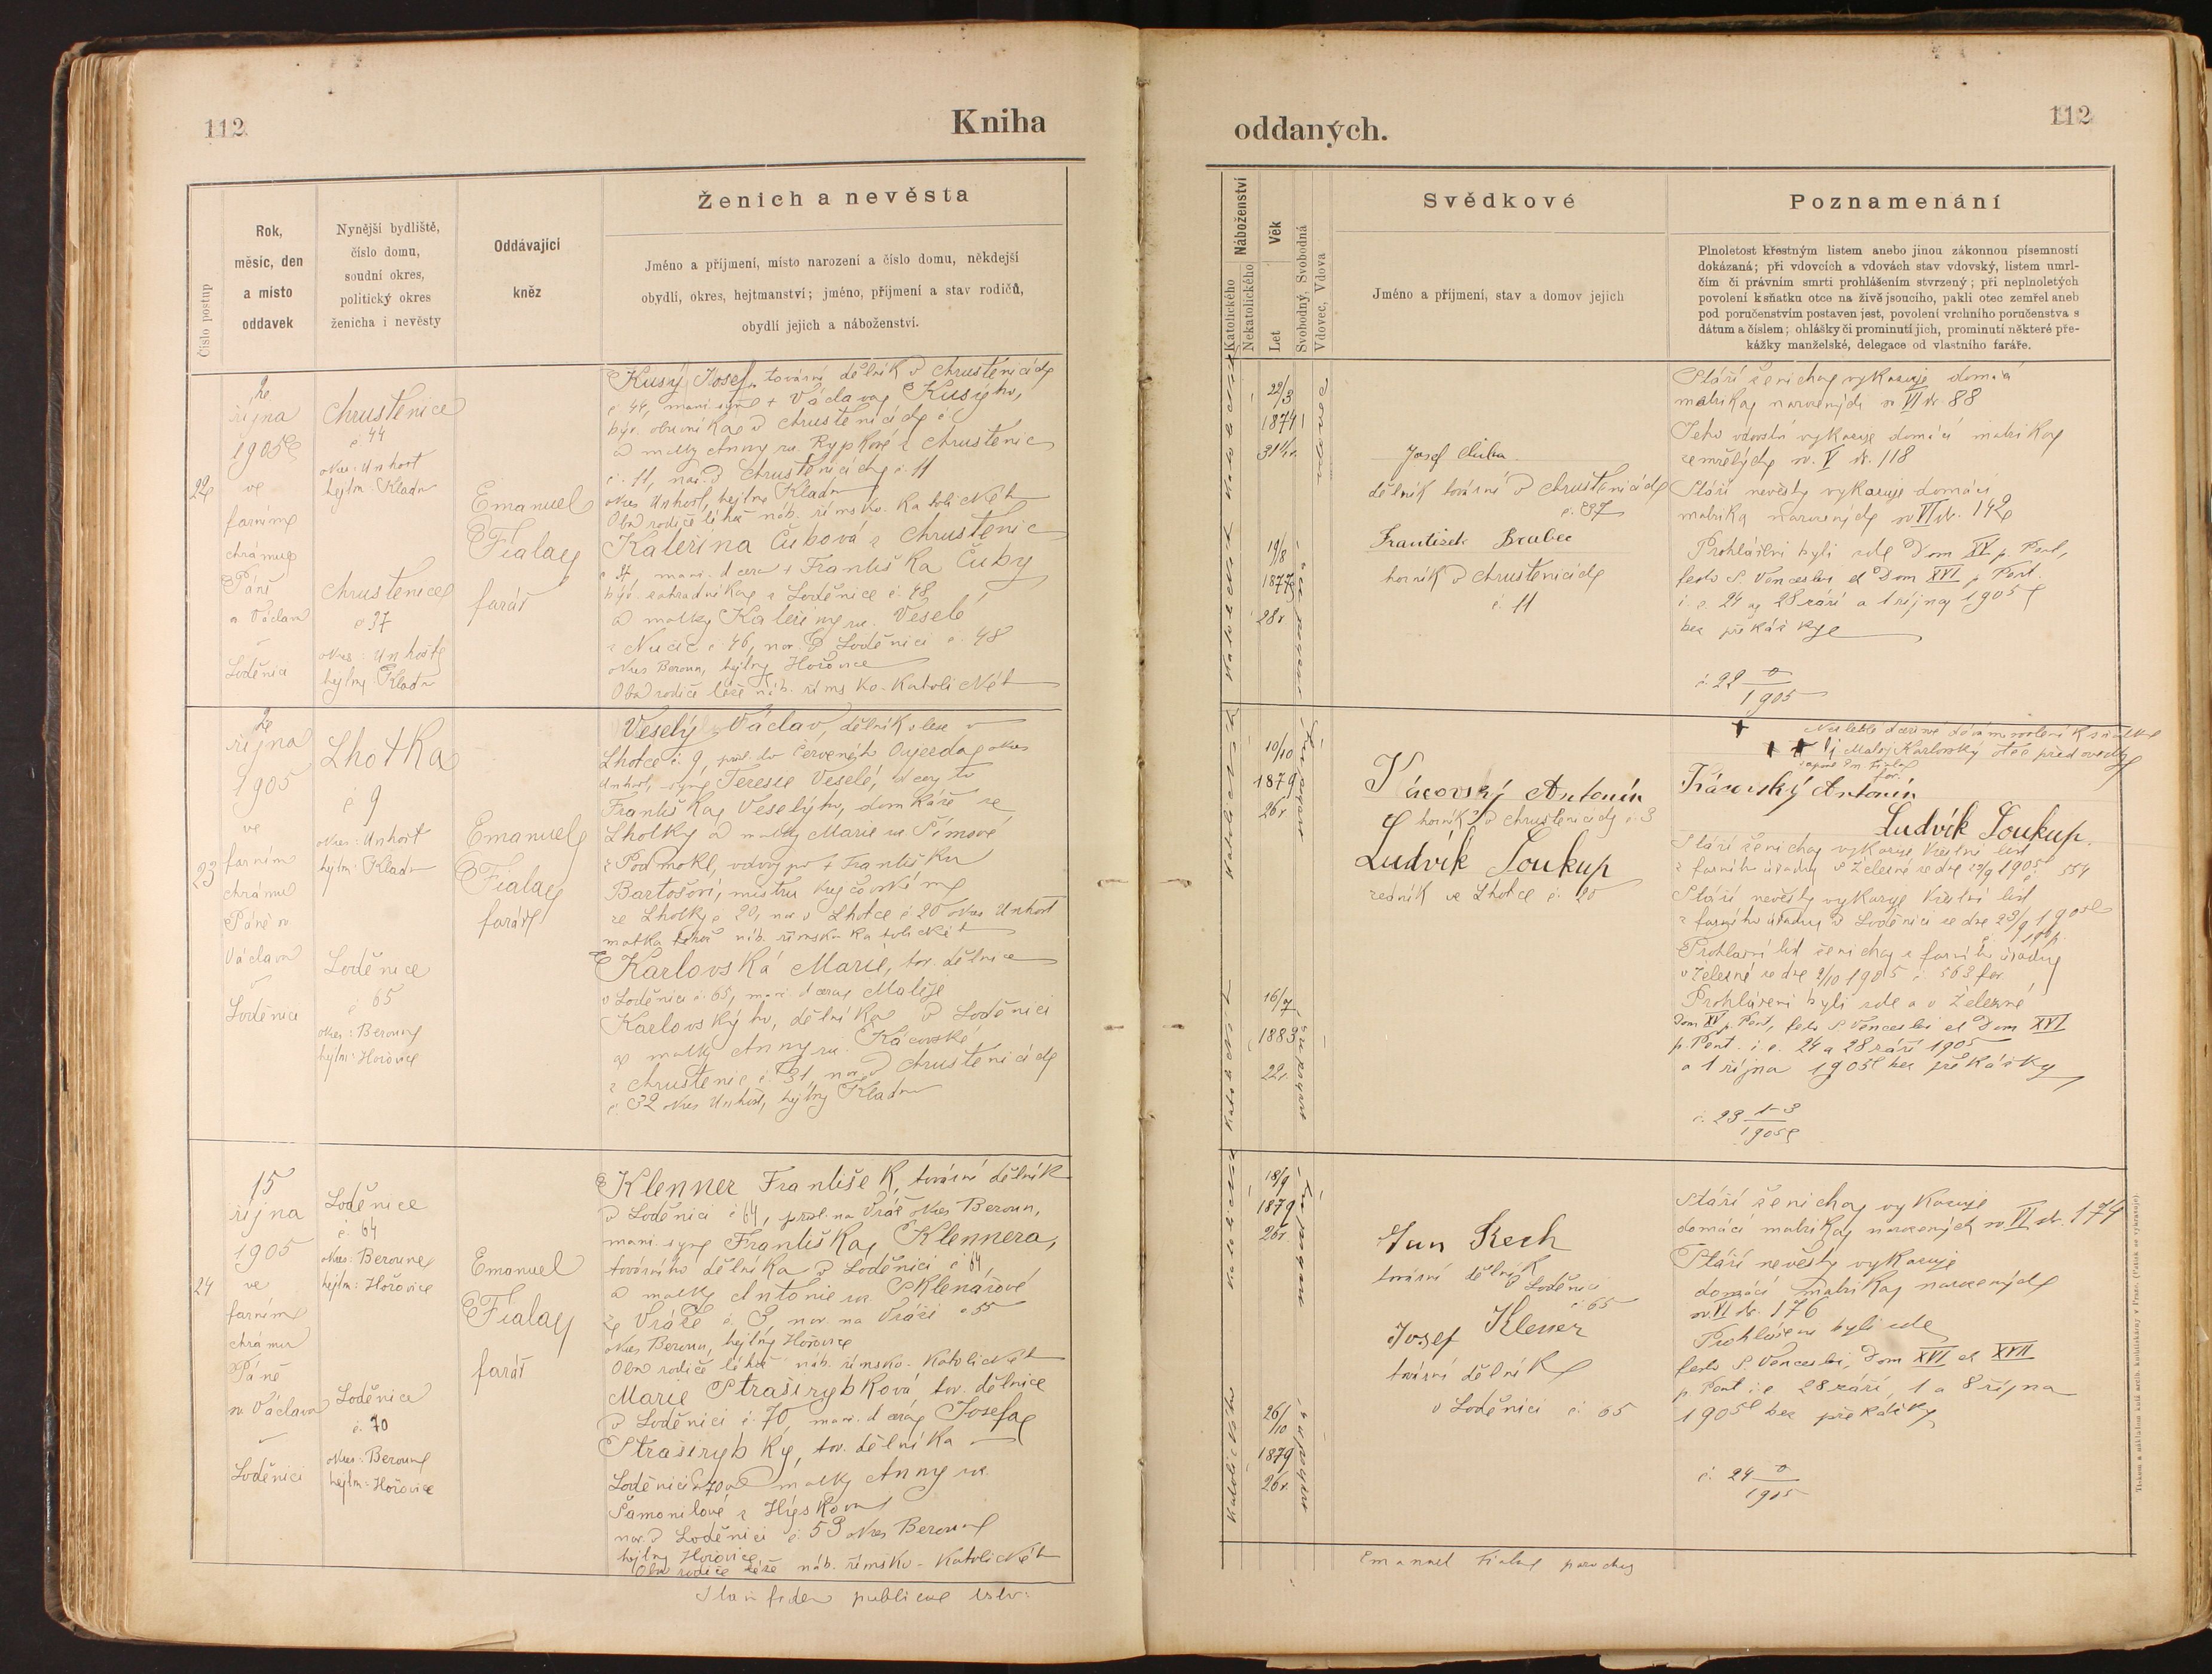 112
Kniha
Číslo postup
Rok,
měsíc, den
a místo
oddavek
Nynější bydliště,
číslo domu,
soudní okres,
politický okres
ženicha i nevěsty
Oddávající
kněz
Ženich a nevěsta
Jméno a příjmení, místo narození a číslo domu, někdejší
obydlí, okres, hejtmanství; jméno, příjmení a stav rodičů,
obydlí jejich a náboženství.
22
2
října
1905
ve
farním
chrámu
Páně
Václava
Loděnici
Chrustenice
č 44
okres: Unhošť
hejtm: Kladno
Chrustenice
č 37
okres: Unhošť
hejtm: Kladno
Emanuel
Fiala
farář
Kusý Josef, tovární dělník v Chrustenicích
č 44, manž. syn + Václava Kusýho,
v Chrustenicích č.
a matky Anny roz. Rypkové z Chrustenic
č. 11, nar. v Chrustenicích č. 11
okres Unhošť, hejtm. Kladno
Oba rodiče náb. římsko-katolického
Kateřina Čubová z Chrustenic
č 37, manž. dcera + Františka Čuby
býv. zahradníka z Loděnice č. 48
a matky Kateřiny roz. Veselé
z Nučic č 46, nar. v Loděnici č. 48
okres Beroun, hejtm. Hořovice
Oba rodiče též náb. římsko-katolického
23
2
října
1905
ve
farním
chrámu
Páně
Václava
v
Loděnici
Lhotka
č 9
okres: Unhošť
hejtm: Kladno
Loděnice
č 65
okres: Beroun
hejtm: Hořovice
Emanuel
Fiala
farář
Veselý Václav, dělník v
Lhotce č. 9, Červeného Újezda okres
Unhošť, syn Terezie Veselé, dcery
Františka Veselýho, domkáře ze
Lhotky a matky Marie roz. Šímové
z Podmokl, + Františku
Bartošovi, mistru krejčovském
ze Lhotky č 20, nar. v Lhotce č 20 okres Unhošť
matka náb. římsko-katolického
Karlovská Marie, tov. dělnice
v Loděnici č. 65, manž. dcera Matěje
Karlovskýho, dělníka v Loděnici
a matky Anny roz. Kácovské
z Chrustenic č. 31, nar. v Chrustenicích
č. 32 okres Unhošť, hejtm. Kladno
24
15
října
1905
ve
farním
chrámu
Páně
sv. Václava
Loděnici
Loděnice
č. 64
okres: Beroun
hejtm: Hořovice
Loděnice
č. 70
okres: Beroun
hejtm: Hořovice
Emanuel
Fiala
farář
Klenner František, tovární dělník
v Loděnici č 64, na Vráž okres Beroun,
manž. syn Františka Klennera,
továrního dělníka v Loděnici č 64,
a matky Antonie roz. Sklenářové
z Vráže č. 3, nar. na Vráži č 55
okres Beroun, hejtm. Hořovice
Oba rodiče náb. římsko-katolického
Marie Straširybková, tov. dělnice
v Loděnici č. 70, manž. dcera Josefa
Straširybky, tov. dělníka
Loděnici č 70 a matky Anny roz.
Šamonilové z Hýskova
nar. v Loděnici č. 53 okres Beroun
hejtm. Hořovice
Oba rodiče též náb. římsko-katolického
fidem publicae
oddaných.
112
Náboženství
Katolického
Nekatolického
Věk
Let
Svobodný, Svobodná
Vdovec, Vdova
Svědkové
Jméno a příjmení, stav a domov jejich
Poznamenání
Plnoletost křestným listem anebo jinou zákonnou písemností
dokázaná; při vdovcích a vdovách stav vdovský, listem umrl-
čím či právním smrti prohlášením stvrzený; při neplnoletých
povolení k sňatku otce na živě jsoucího, pakli otec zemřel aneb
pod poručenstvím postaven jest, povolení vrchního poručenstva s
dátum a číslem; ohlášky či prominutí jich, prominutí některé pře-
kážky manželské, delegace od vlastního faráře.
22/3
1874
31½ r.
vdovec
19/8
1877
28 r
Josef Čuba
dělník tovární v Chrustenicích
č. 37
František Brabec
horník v Chrustenicích
č. 11
Stáří ženicha vykazuje domácí
matrika narozených sv. VI str. 88
Jeho vdovství vykazuje domácí matrika
zemřelých sv. V str. 118
Stáří nevěsty vykazuje domácí
matrika narozených sv. VI str. 142
Prohlášeni byli zde Dom XV p. Pent,
festo S. Venceslai et Dom XVI p Pent.
i. e. 24 a 28 září a 1 října 1905
bez překážky
č. 22 0
1905
10/10
1879
26 r
16/7
1883
22 r.
Kácovský Antonín
horník v Chrustenicích č. 3
Ludvík Soukup
řezník ve Lhotce č. 20
dceři dávám svolení k sňatku
Matěj Karlovský otec
Kácovský Antonín
Ludvík Soukup.
Stáří ženicha vykazuje křestní list
z farního úřadu v Železné ze dne 23/9 1905 č. 554
Stáří nevěsty vykazuje křestní list
z farního úřadu v Loděnici ze dne 23/9 1905
Prohlašní list ženicha z farního úřadu
v Železné ze dne 2/10 1905 č. 563
Prohlášeni byli zde a v Železné
Dom XV p. Pent, festo S Venceslai et Dom XVI
p. Pent. i. e. 24 a 28 září 1905
a 1 října 1905 bez překážky
č. 23 1-3
1905
18/9
1879
26 r
26/10
1879
26 r.
Jan Rech
tovární dělník
v Loděnici
č. 65
Josef Klener
tovární dělník
v Loděnici č. 65
Stáří ženicha vykazuje
domácí matrika narozených sv VI str. 174
Stáří nevěsty vykazuje
domácí matrika narozených
sv. VI str. 176
Prohlášeni byli zde
festo S. Venceslai, Dom XVI et XVII
p Pent i. e 28 září, 1 a 8 října
1905 bez překážky
č. 24 0
1905
Emanuel Fiala parochus